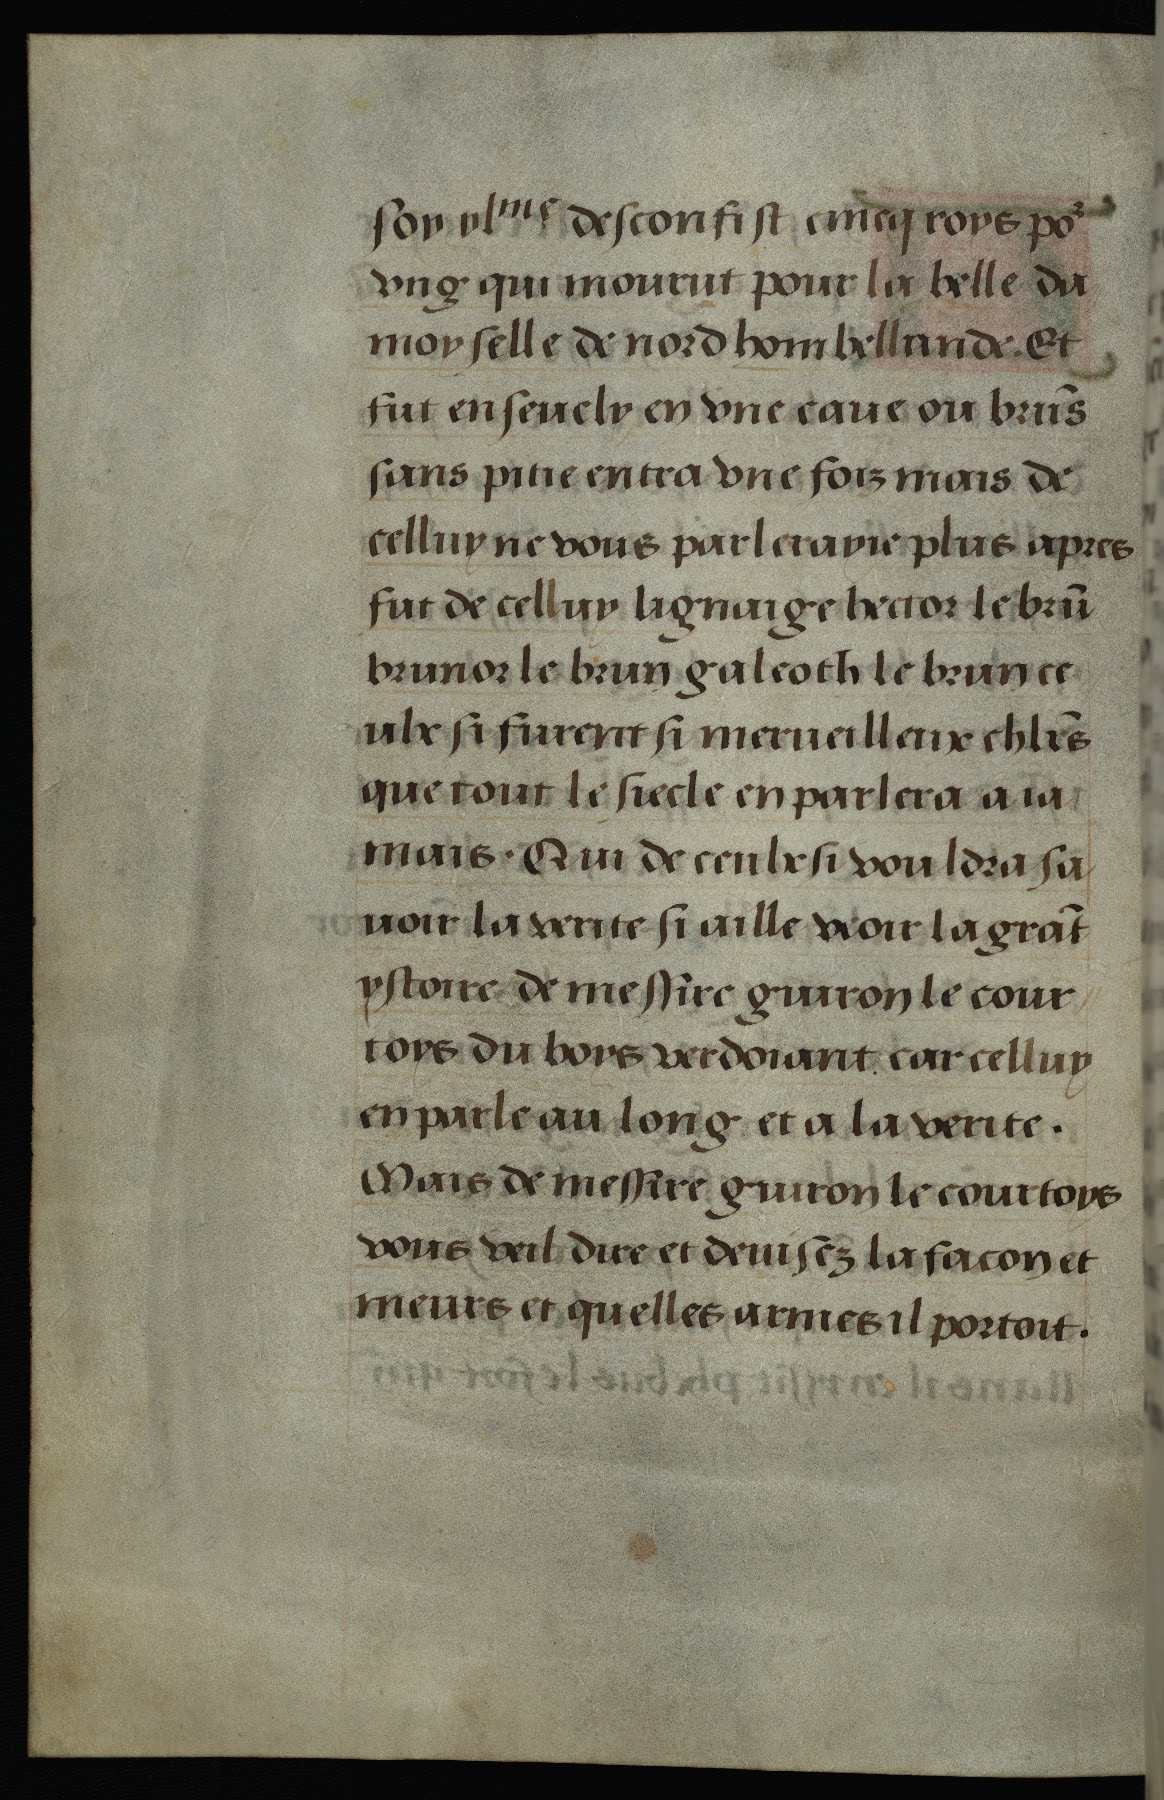 soy xl^me desconfist cincq roys po^r
vng qui mourut pour la belle da
moyselle de nordhombellande. Et
fut ensevely en vne caue ou brūs
sans pitie entra vne foiz mais de
celluy ne vous parlerayie plus apres
fut de celluy lignaige hector le brū
brunor le brun galeoth le brun ce
ulx si furent si merueilleux chlrs̄
que tout le siecle en parlera a ia
mais. Qui de ceulx si vouldra sa
uoir la verite si aille veoir la grāt
ystoire de messire guiron le cour
toys du boys verdoiant. car celluy
en parle au long et a la verite.
Mais de messire guiron le courtoys
vous veil dire et deuisez la facon et
meurs et quelles armes il portoit.